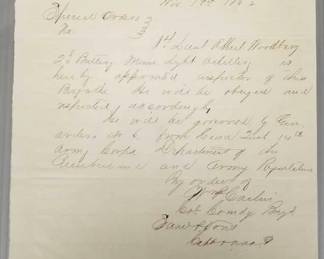 Nov 1862
Special Orders
No
1st Lieut Albert Woodbury
2d Battery Minn Light Artillery is
hereby appointed inspector of this
Brigade He will be obeyed and
respected accordingly,
He will be governed by
orders No 6 from 14th
Army Corps Department of the
Cumberland and Army Regulations
By order of
Wm P Carlin
Col Comdg Brigd